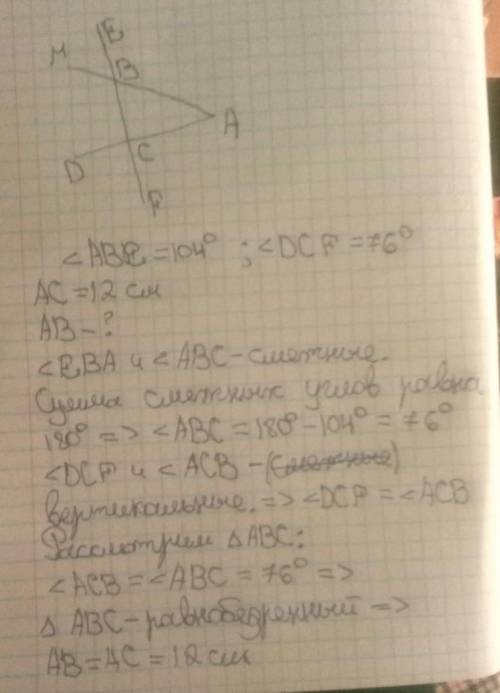 E
M
B
A
C
D
F
∠ABE = 104° ; ∠DCF = 76°
AC = 12 см
AB - ?
∠EBA и ∠ABC - смежные.
Сумма смежных углов равна
180° => ∠ABC = 180° - 104° = 76°
∠DCF и ∠ACB - (смежные)
вертикальные. => ∠DCF = ∠ACB
Рассмотрим △ABC:
∠ACB = ∠ABC = 76° =>
△ ABC - равнобедренный =>
AB = AC = 12 см